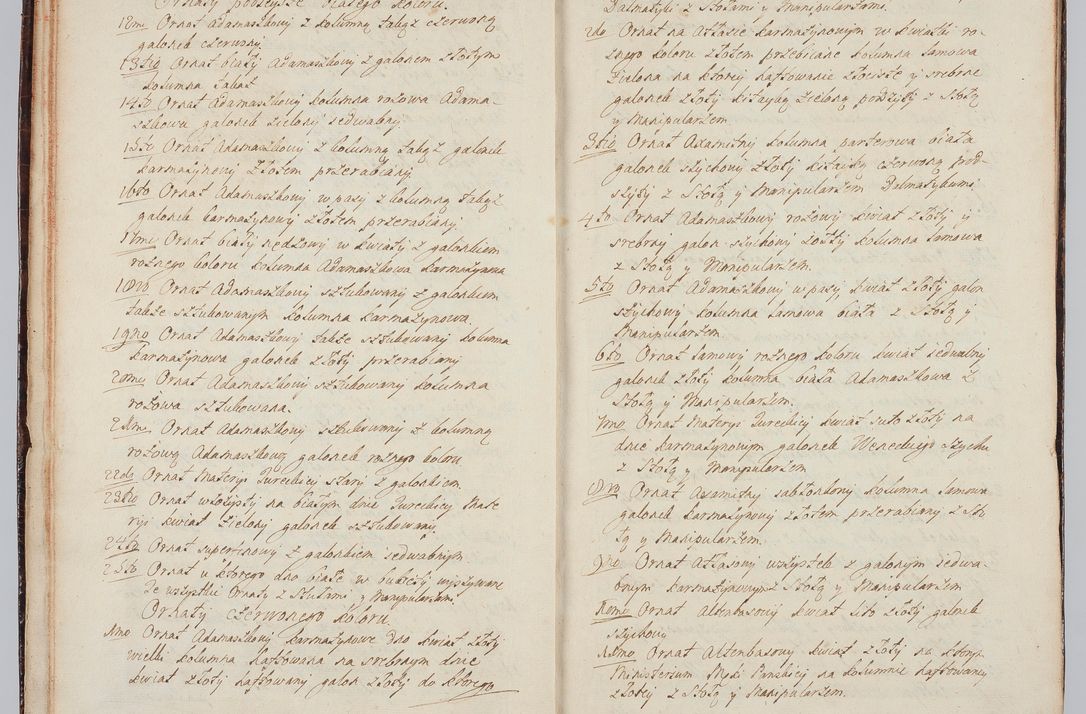 Ornaty powszysze białego koloru.
12mo Ornat Adamaszkowy z kolumną tabiz czerwoną
galonek czerwony.
13tio Ornat biały Adamaszkowy z galonem złotym
kolumna tabiz
14to Ornat Adamaszkowy kolumna rożowa Adama-
szkowa galonek zielony jedwabny.
15to Ornat Adamaszkowy z kolumną tabiz galonek
karmazynowy złotem przerabiany.
16to Ornat Adamaszkowy w pasy z kolumną tabiz
galonek karmazynowy złotem przerabiany.
17mo Ornat biały w kwiaty z galonkiem
rożnego koloru kolumna Adamaszkowa karmazynowa
18vo Ornat Adamaszkowy sztukowany z galonkiem
także sztukowanym kolumna karmazynowa.
19no Ornat Adamaszkowy także sztukowany kolumna
karmazynowa galonek złoty przerabiany
20mo Ornat Adamaszkowy sztukowany kolumna
rożowa sztukowana.
21mo Ornat Adamaszkowy sztukowany z kolumną
rożową Adamaszkową galonek rożnego koloru
22do Ornat Materyi Tureckiey stary z galonkiem
23tio Ornat na białym dnie Tureckiey Mate
ryi kwiat zielony galonek sztukowany
24to Ornat superfinowy z galonkiem jedwabnym.
25to Ornat u ktorego dno białe w bukiety
Te wszystkie Ornaty z Stułami y Manipularzami.
Ornaty czerwonego koloru.
1mo Ornat Adamaszkowy karmazynowe dno kwiat złoty
wielki kolumna haftowana na srebrnym dnie
kwiat złoty haftowany galon złoty do ktorego
Dalmatyki z Stołami y Manipularzami.
2do Ornat na Atłasie karmazynowym w kwiatki ro-
żnego koloru złotem przebiiane kolumna lamowa
zielona na ktorey haftowanie złociste y srebrne
galonek złoty kitayką zieloną podszyty z Stołą
y Manipularzem.
3tio Ornat Axamitny kolumna parterowa biała
galonek szychowy złoty kitayką czerwoną pod-
szyty z Stołą y Manipularzem Dalmatykami
4to Ornat Adamaszkowy rożowy kwiat złoty y
srebrny galon szychowy żołty kolumna lamowa
z Stołą y Manipularzem.
5to Ornat Adamaszkowy w pasy, kwiat złoty galon
szychowy kolumna lamowa biała z Stołą y
Manipularzem.
6to Ornat lamowy rożnego koloru kwiat jedwabny
galonek złoty kolumna biała Adamaszkowa z
Stołą y Manipularzem.
7mo Ornat Materyi Tureckiey kwiat suto złoty na
dnie karmazynowym galonek Weneckiego szychu
z Stołą y Manipularzem
8vo Ornat Axamitny kolumna lamowa
galonek karmazynowy złotem przerabiany z Sto
łą y Manipularzem.
9no Ornat Atłasowy z galonym jedwa-
bnym karmazynowym z Stołą y Manipularzem
10mo Ornat Altenbasowy kwiat lito złoty galonek
szychowy
11mo Ornat Altenbasowy kwiat złoty na ktorym
Ministerium Męki Pańskiey na kolumnie haftowaney
złotey z Stołą y Manipularzem.